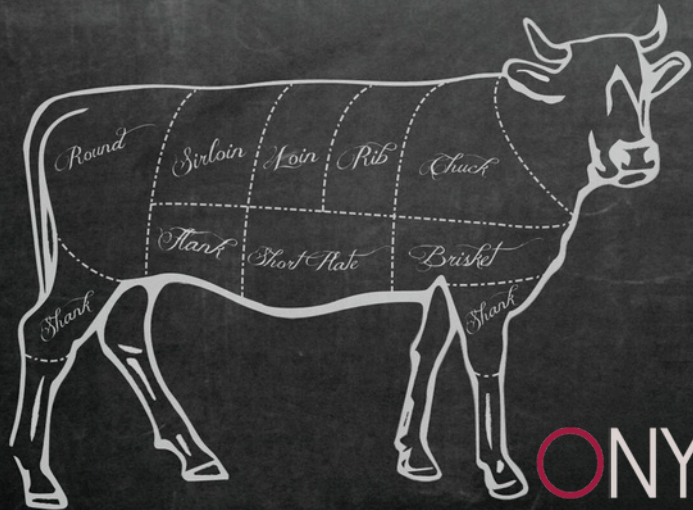 Round
Sirloin
Loin
Rib
Chuck
Flank
Short Plate
Brisket
Shank
Shank
ONY